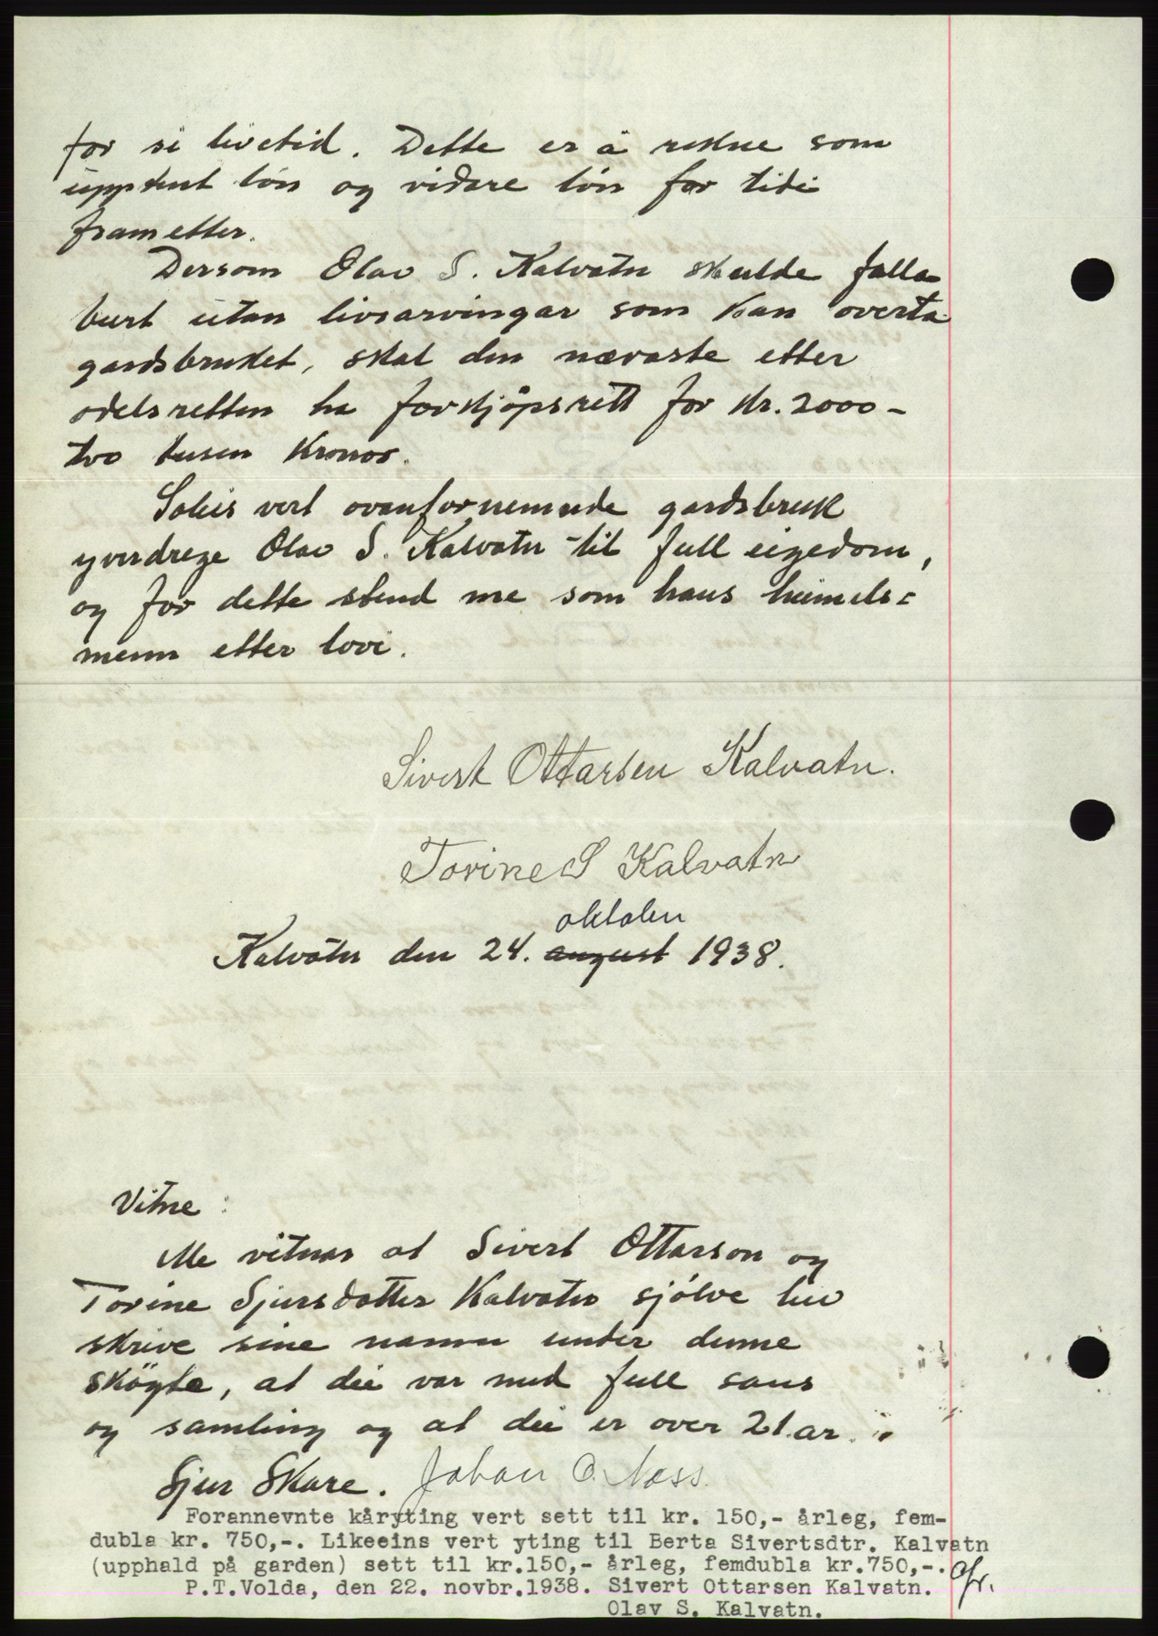 for si livetid. Dette er å rekne som
upptent løn og vidare løn for tidi
frametter.
Dersom Olav S. Kalvatn skulde falla
burt utan livsarvingar som kan overta
gardsbruket, skal den næraste etter
odelsretten ha forkjøpsrett for kr. 2000 -
tvo tusen kronor.
Soleis vert ovanfornemnde gardsbruk
yverdrege Olav S. Kalvatn til full eigedom,
og for dette stend me som hans heimels=
menn etter lovi.
Sivert Ottarsen Kalvatn.
Torine S Kalvatn
oktober
Kalvatn den 24. august 1938.
Vitne:
Me vitnar at Sivert Ottarson og
Torine Sjursdotter Kalvatn sjølve hev
skrive sine namn under denne
skøyte, at dei var med full sans
og samling og at dei er over 21 år.
Sjur Skare. Johan O. Næss.
Forannevnte kåryting vert sett til kr. 150,- årleg, fem-
dubla kr. 750,-. Likeeins vert yting til Berta Sivertsdtr. Kalvatn
(upphald på garden) sett til kr.150,- årleg, femdubla kr.750,-.
P.T.Volda, den 22. novbr.1938. Sivert Ottarsen Kalvatn.
Olav S. Kalvatn.